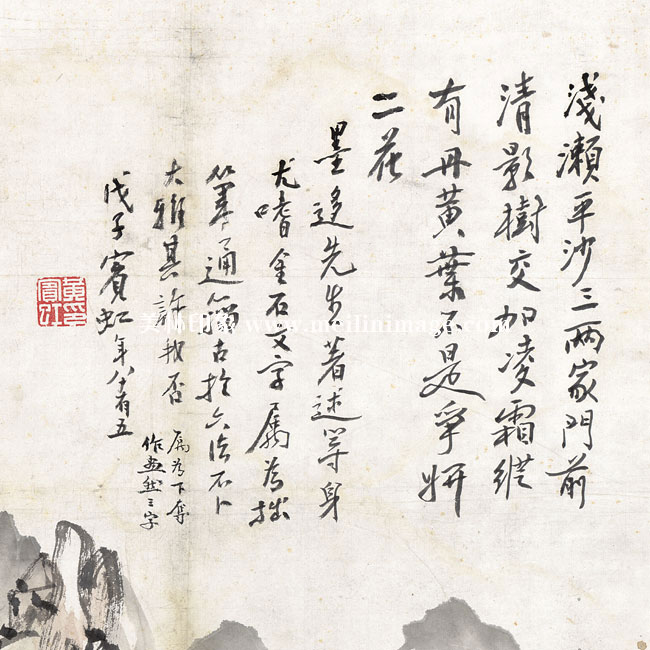 淺瀨平沙三兩家門前
清影樹交加凌霜縱
有丹黃葉不是爭妍
二花
墨迻先生著述等身
尤嗜金石文字屬爲拙
筆通籀古於六法不卜
大雅其許我否
屬爲下奪
作畫然三字
戊子賓虹年八十有五
www.meilinimage.com